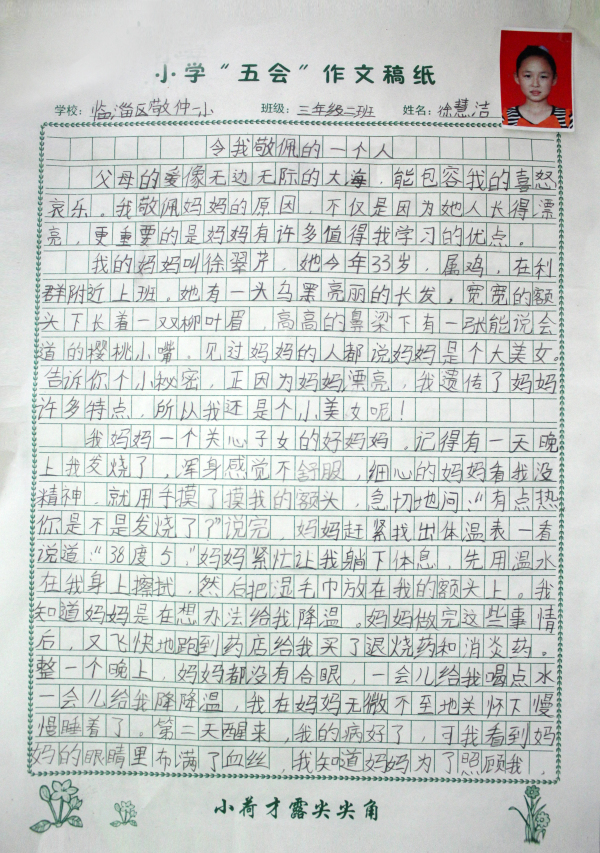 小学“五会”作文稿纸
学校：临淄区敬仲一小 班级：三年级二班 姓名：徐慧洁
令我敬佩的一个人
父母的爱像无边无际的大海，能包容我的喜怒
哀乐。我敬佩妈妈的原因，不仅是因为她人长得漂
亮，更重要的是妈妈有许多值得我学习的优点。
我的妈妈叫徐翠芹，她今年33岁，属鸡，在利
群附近上班。她有一头乌黑亮丽的长发，宽宽的额
头下长着一双柳叶眉，高高的鼻梁下有一张能说会
道的樱桃小嘴。见过妈妈的人都说妈妈是个大美女。
告诉你个小秘密，正因为妈妈漂亮，我遗传了妈妈
许多特点，所以我还是个小美女呢！
我妈妈一个关心子女的好妈妈。记得有一天晚
上我发烧了，浑身感觉不舒服，细心的妈妈看我没
精神，就用手摸了摸我的额头，急切地问：“有点热
你是不是发烧了？”说完，妈妈赶紧找出体温表一看
说道：“38度5，”妈妈紧忙让我躺下休息，先用温水
在我身上擦拭，然后把湿毛巾放在我的额头上。我
知道妈妈是在想办法给我降温。妈妈做完这些事情
后，又飞快地跑到药店给我买了退烧药和消炎药。
整一个晚上，妈妈都没有合眼，一会儿给我喝点水
一会儿给我降降温，我在妈妈无微不至地关怀下慢
慢睡着了。第二天醒来，我的病好了，可我看到妈
妈的眼睛里布满了血丝，我知道妈妈为了照顾我，
小荷才露尖尖角